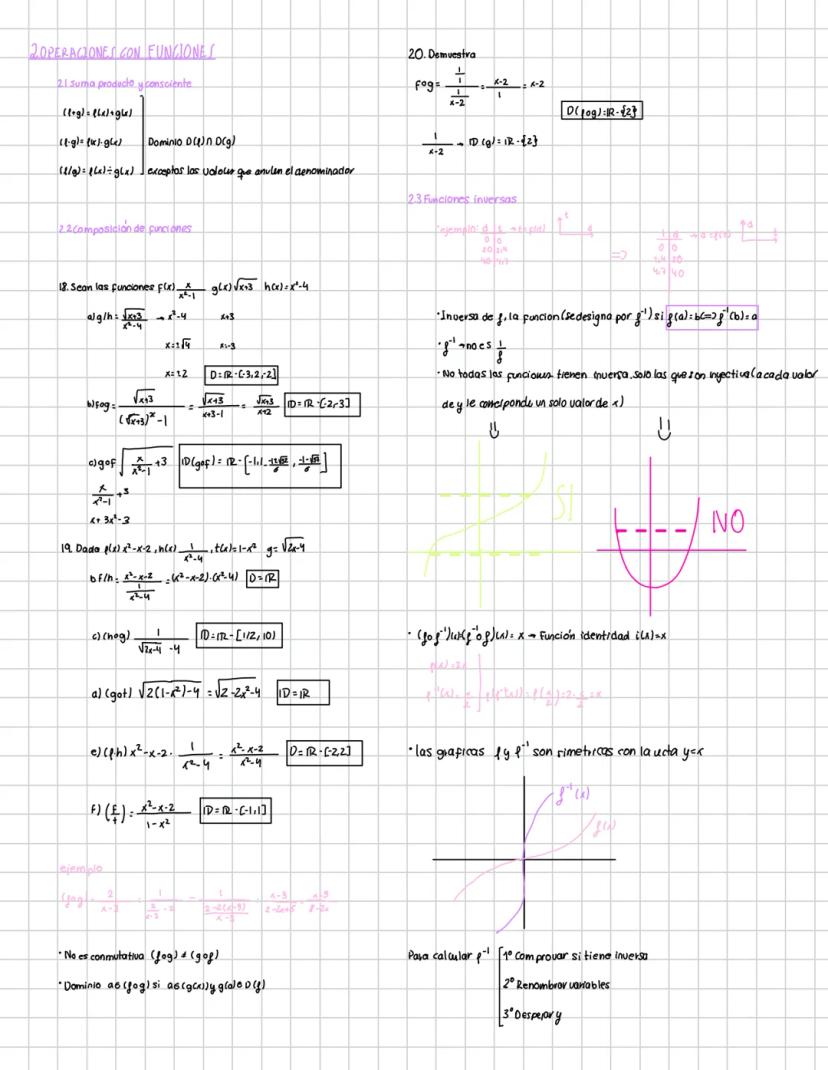 2.OPERACIONES CON FUNCIONES
2.1 Suma producto y consciente
(f+g)= f(x)+g(x)
(f·g)= f(x)·g(x) Dominio D(f)∩D(g)
(f/g)= f(x)÷g(x) exceptos los valores que anulen el denominador
2.2 Composición de funciones
18. Sean las funciones f(x) x/x²-1 g(x) √x+3 h(x)=x²-4
a) g/h= √x+3/x²-4 → x²-4 x+3
x=±√4 x=-3
x=±2 D=IR-[-3,2,-2]
b) fog= √x+3/(√x+3)²-1 = √x+3/x+3-1 = √x+3/x+2 ID=IR-[-2,-3]
c) gof √x/x²-1 +3 ID(gof)= IR-[-1,1,
x/x²-1 +3
x+3x²-3
19. Dada f(x) x²-x-2, h(x) 1/x²-4, t(x)=1-x² g=√2x-4
b f/h= x²-x-2/1/x²-4 =(x²-x-2)·(x²-4) D=IR
c) (hog) 1/√2x-4 -4 ID=IR-[1/2,10)
a) (got) √2(1-x²)-4 = √2-2x²-4 ID=IR
e) (f·h) x²-x-2· 1/x²-4 = x²-x-2/x²-4 D=IR-[-2,2]
F) (F/t)= x²-x-2/1-x² ID=IR-[-1,1]
ejemplo
(fog)= 2/x-3 = 1/2/x-3 -2 = 1/2-2(x-3)/x-3 = x-3/2-2x+6 = x-3/8-2x
· No es conmutativa (fog) ≠ (gof)
· Dominio a∈(fog) si a∈(g(x)) y g(a)∈D(f)
20. Demuestra
fog= 1/1/1/x-2 = x-2/1 = x-2
D(fog)=IR-{2}
1/x-2 → ID(g)=IR-{2}
2.3 Funciones inversas
·ejemplo: d t → t=f(d) t d
0 0
=>
t d → d=f(t) d t
0 0
4,7 40
· Inversa de f, la funcion (se designa por f⁻¹) si f(a)=b<=>f⁻¹(b)=a
· f⁻¹ → no es 1/f
· No todas las funciones tienen inversa, solo las que son inyectiva (a cada valor
de y le corresponde un solo valor de x)
SI
NO
· (fof⁻¹)(x)=(f⁻¹of)(x)= x → Función identidad i(x)=x
f(x)=2x
f⁻¹(x)= x/2 f(f⁻¹(x))=f(x/2)=2·x/2=x
· las graficas f y f⁻¹ son simetricas con la recta y=x
f⁻¹(x)
f(x)
Para calcular f⁻¹ 1º Comprovar si tiene inversa
2º Renombrar variables
3º Despejar y